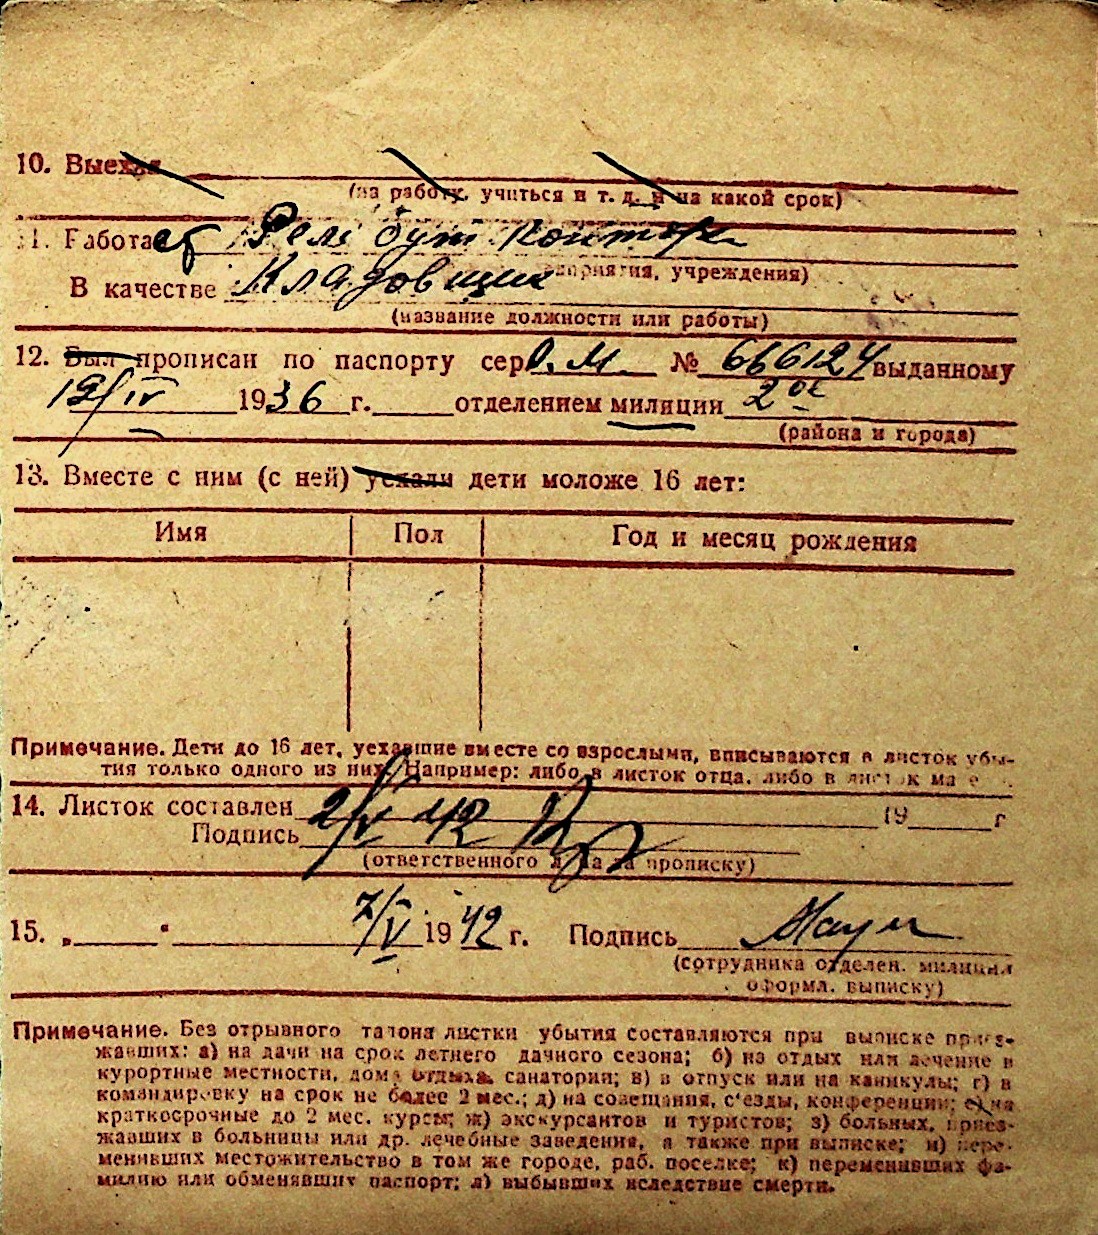 10. Выехал
(на работу, учиться и т. д. и на какой срок)
11. Работает
приятия, учреждения)
В качестве Кладовщик
(название должности или работы)
12. Был прописан по паспорту сер О. М. № 666124 выданному
19/IV 1936 г. отделением милиции 2ое
(района и города)
13. Вместе с ним (с ней) уехали дети моложе 16 лет:
Имя Пол Год и месяц рождения
Примечание. Дети до 16 лет, уехавшие вместе со взрослыми, вписываются в листок убы-
тия только одного из них. Например: либо в листок отца, либо в листок ма
14. Листок составлен 2/V 42 19 г
Подпись
(ответственного за прописку)
15. „ “ 7/V 1942 г. Подпись
(сотрудника отделен. милиции
оформл. выписку)
Примечание. Без отрывного талона листки убытия составляются при выписке приез-
жавших: а) на дачи на срок летнего дачного сезона; б) на отдых или лечение в
курортные местности, дома отдыха, санатории; в) в отпуск или на каникулы; г) в
командировку на срок не более 2 мес.; д) на совещания, с'езды, конференции; е) на
краткосрочные до 2 мес. курсы; ж) экскурсантов и туристов; з) больных, приез-
жавших в больницы или др. лечебные заведения, а также при выписке; и) пере-
менивших местожительство в том же городе, раб. поселке; к) переменивших фа-
милию или обменявших паспорт; л) выбывших вследствие смерти.